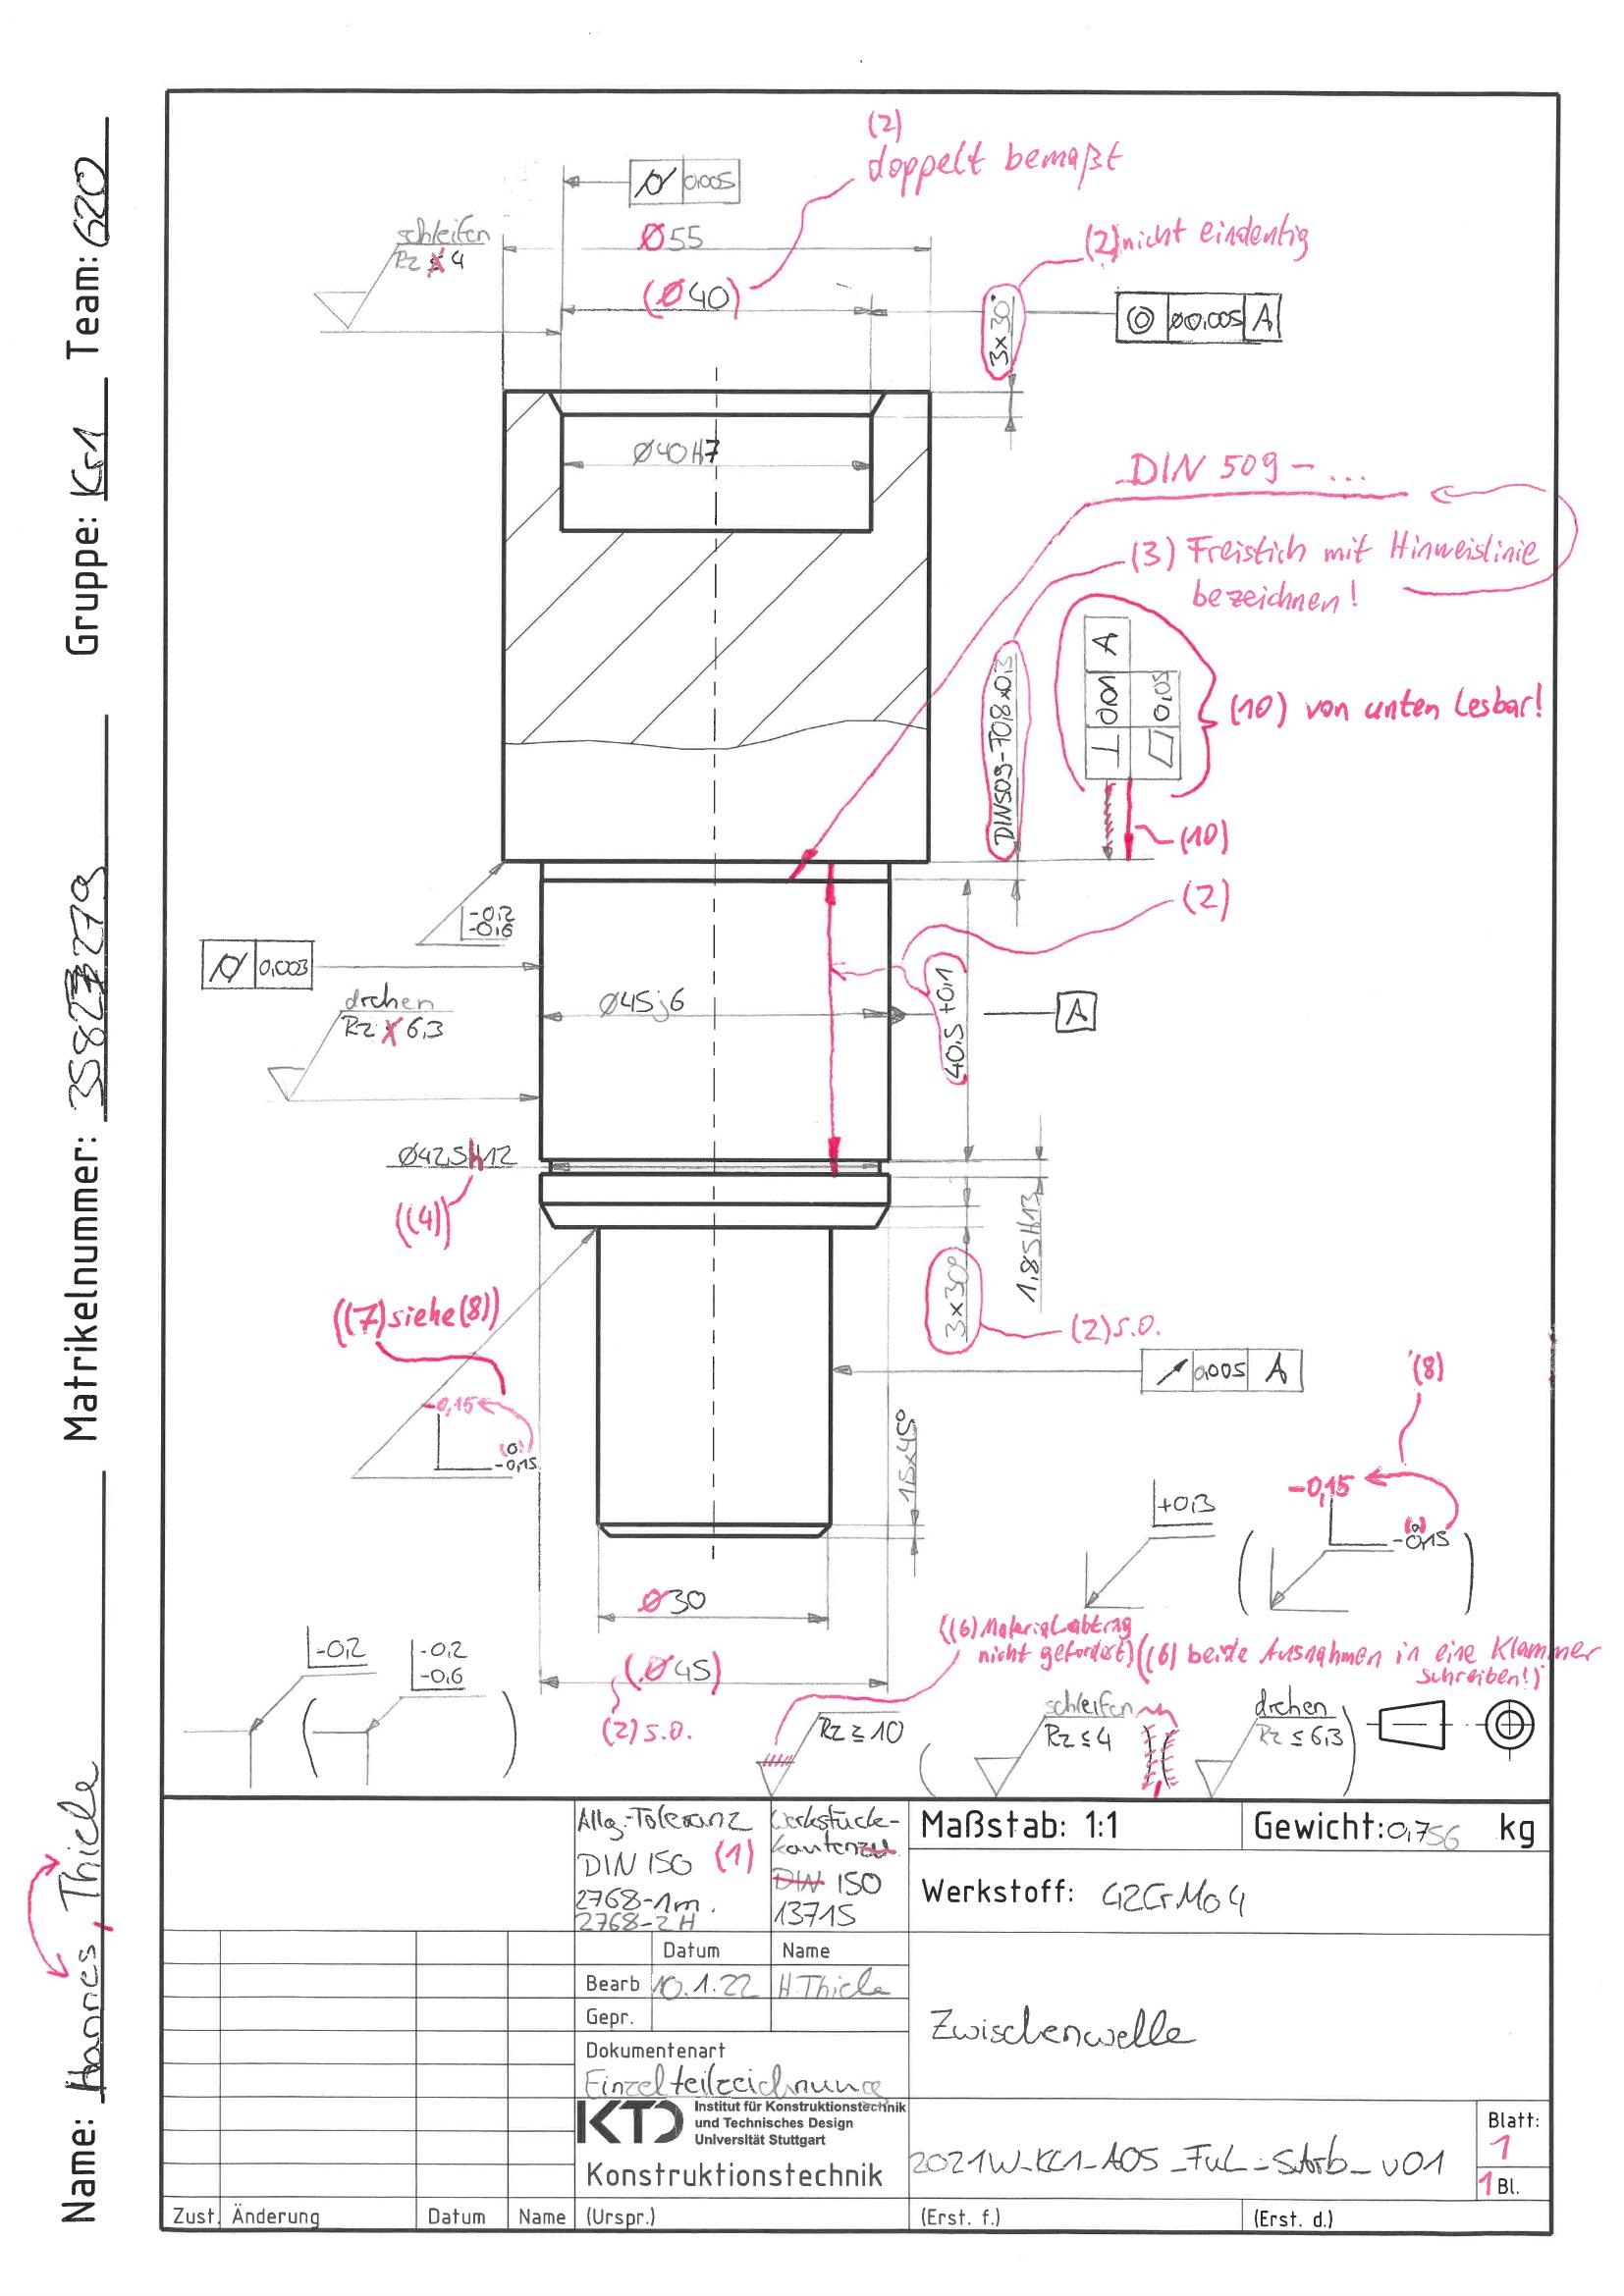 (2)
doppelt bemaßt
0,005
schleifen
Rz ≤ 4
Ø55
(2) nicht eindeutig
(Ø40)
3x30°
Ø0,005 A
Ø40H7
DIN 509 - ...
(3) Freistich mit Hinweislinie
bezeichnen!
DIN509-F0,8x0,3
⊥ 0,01 A
0,05
(10) von unten lesbar!
(10)
-0,2
-0,6
(2)
0,003
drehen
Rz ≤ 6,3
Ø45j6
40,5 +0,1
A
Ø42,5h12
((4))
1,85H13
3x30°
(2) s.o.
((7) siehe (8))
0,005 A
-0,15
(0)
-0,15
1,5x45°
(8)
+0,3
-0,15
(0)
-0,15
Ø30
((6) Materialabtrag
nicht gefordert)
((6) beide Ausnahmen in eine Klammer
schreiben!)
-0,2
-0,2
-0,6
(Ø45)
(2) s.o.
Rz ≥ 10
schleifen
Rz ≤ 4
drehen
Rz ≤ 6,3
Allg.-Toleranz
DIN ISO (1)
2768-1m
2768-2H
Werkstück-
kanten zu
DIN ISO
13715
Maßstab: 1:1
Gewicht: 0,756 kg
Werkstoff: 42CrMo4
Datum Name
Bearb 10.1.22 H.Thiele
Gepr.
Zwischenwelle
Dokumentenart
Einzelteilzeichnung
KTD
Institut für Konstruktionstechnik
und Technisches Design
Universität Stuttgart
Konstruktionstechnik
2021W_KL1_A05_FuL_SArb_v01
Blatt:
1
1 Bl.
Zust. Änderung Datum Name (Urspr.) (Erst. f.) (Erst. d.)
Name: Hannes, Thiele
Matrikelnummer:
Gruppe: Ks1 Team: G20